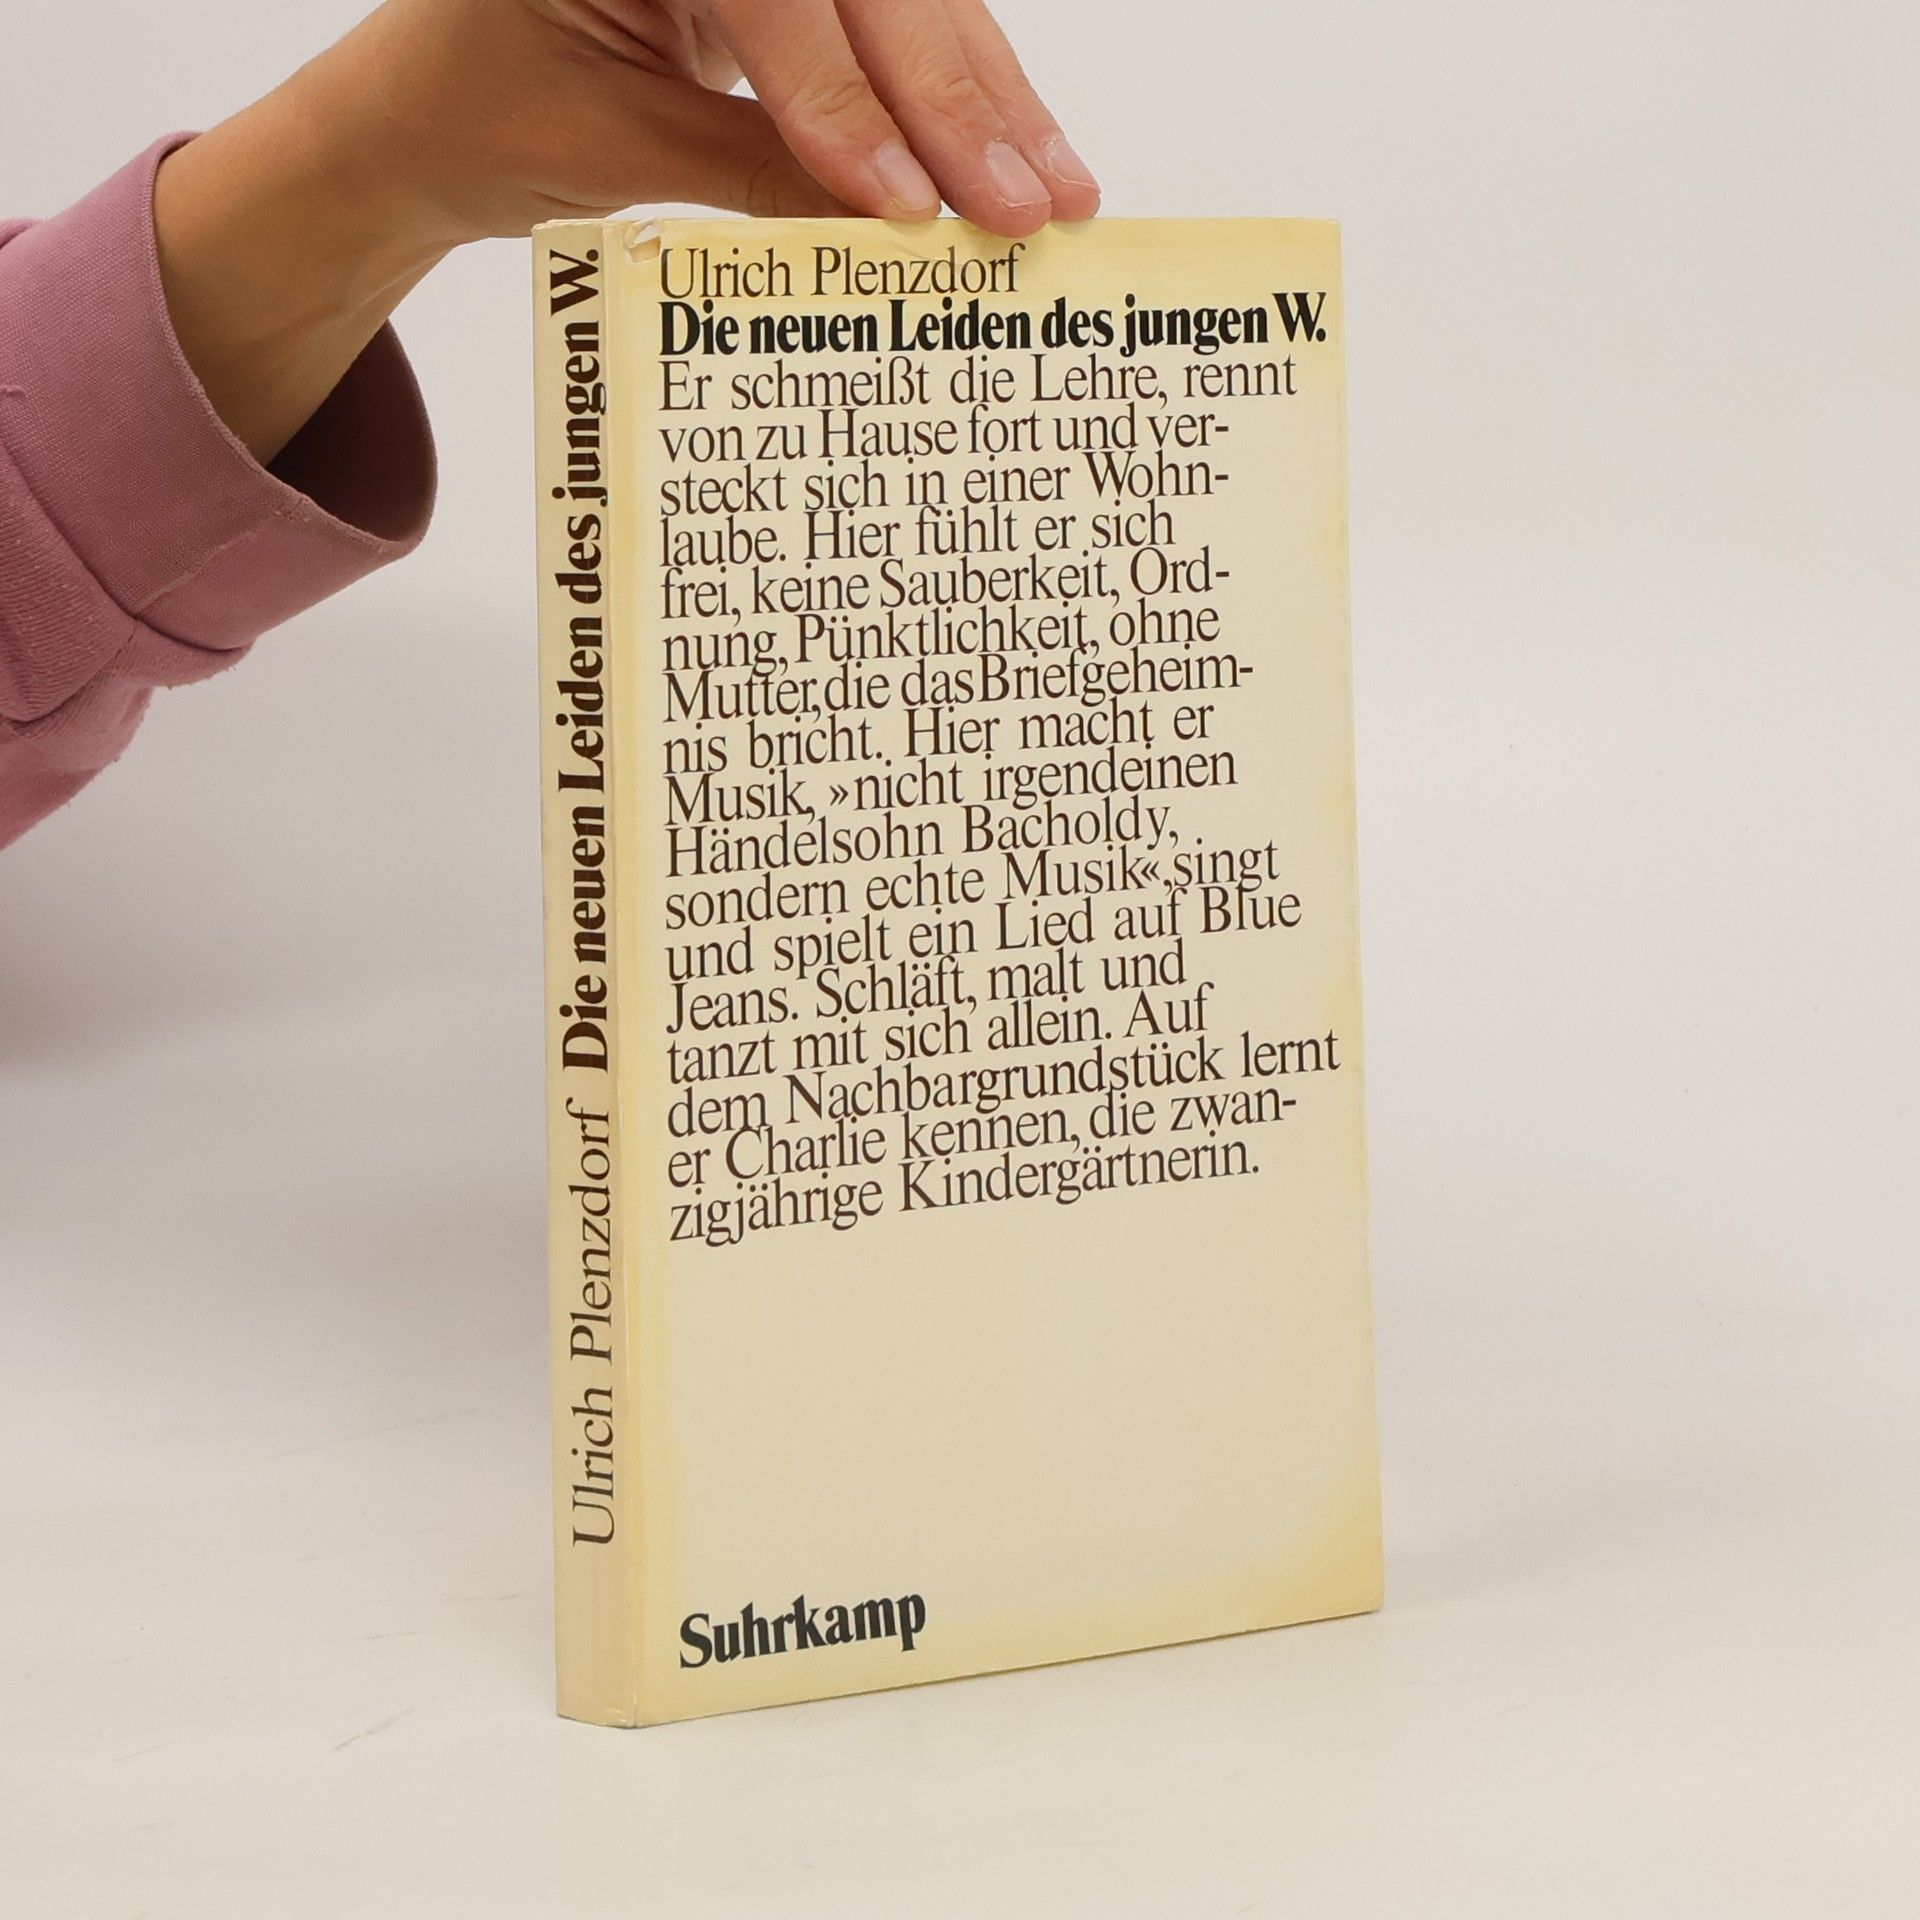 Ulrich Plenzdorf Die neuen Leiden des jungen W.
Ulrich Plenzdorf
Die neuen Leiden des jungen W.
Er schmeißt die Lehre, rennt
von zu Hause fort und ver-
steckt sich in einer Wohn-
laube. Hier fühlt er sich
frei, keine Sauberkeit, Ord-
nung, Pünktlichkeit, ohne
Mutter, die das Briefgeheim-
nis bricht. Hier macht er
Musik, »nicht irgendeinen
Händelsohn Bacholdy,
sondern echte Musik«, singt
und spielt ein Lied auf Blue
Jeans. Schläft, malt und
tanzt mit sich allein. Auf
dem Nachbargrundstück lernt
er Charlie kennen, die zwan-
zigjährige Kindergärtnerin.
Suhrkamp